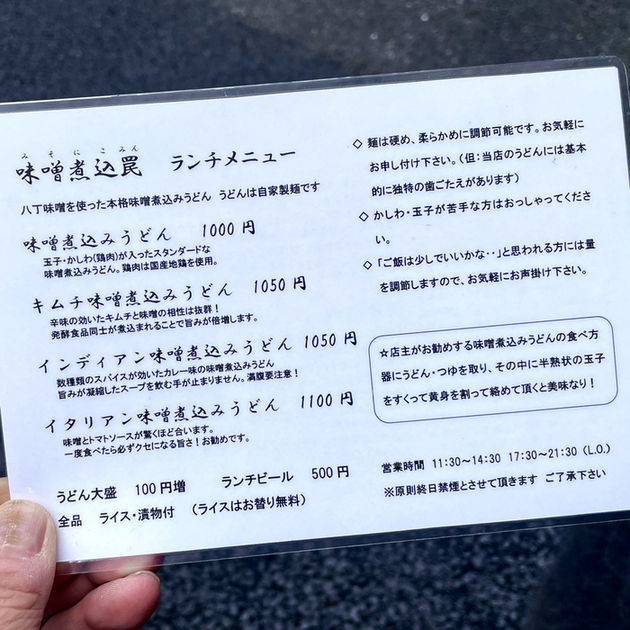 みそにこみん
味噌煮込罠 ランチメニュー
八丁味噌を使った本格味噌煮込みうどん うどんは自家製麺です
味噌煮込みうどん 1000円
玉子・かしわ(鶏肉)が入ったスタンダードな
味噌煮込みうどん。鶏肉は国産地鶏を使用。
キムチ味噌煮込みうどん 1050円
辛味の効いたキムチと味噌の相性は抜群!
発酵食品同士が煮込まれることで旨みが倍増します。
インディアン味噌煮込みうどん 1050円
数種類のスパイスが効いたカレー味の味噌煮込みうどん
旨みが凝縮したスープを飲む手が止まりません。満腹要注意!
イタリアン味噌煮込みうどん 1100円
味噌とトマトソースが驚くほど合います。
一度食べたら必ずクセになる旨さ!お勧めです。
うどん大盛 100円増 ランチビール 500円
全品 ライス・漬物付 (ライスはお替り無料)
◇ 麺は硬め、柔らかめに調節可能です。お気軽に
お申し付け下さい。(但:当店のうどんには基本
的に独特の歯ごたえがあります)
◇ かしわ・玉子が苦手な方はおっしゃってくださ
い。
◇ 「ご飯は少しでいいかな・・」と思われる方には量
を調節しますので、お気軽にお声掛け下さい。
☆店主がお勧めする味噌煮込みうどんの食べ方
器にうどん・つゆを取り、その中に半熟状の玉子
をすくって黄身を割って絡めて頂くと美味なり!
営業時間 11:30~14:30 17:30~21:30 (L.O.)
※原則終日禁煙とさせて頂きます ご了承下さい